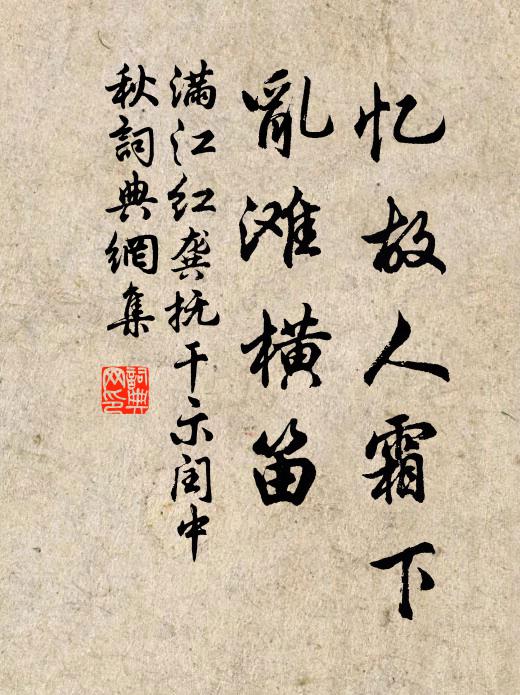 忆故人霜下
亂滩橫笛
满江红龚抚干示闰中
秋詞典網集
詞典網印